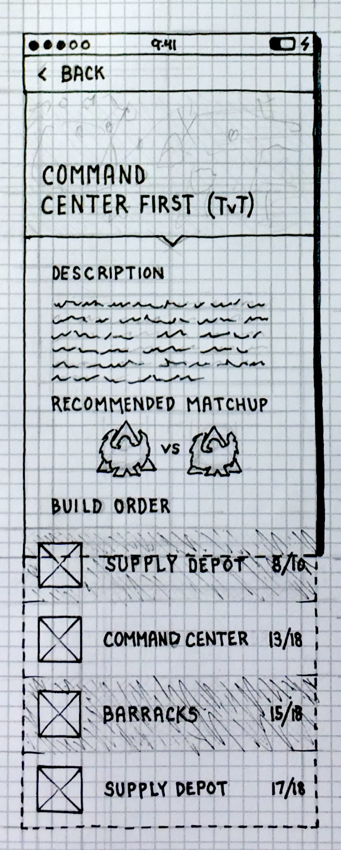 9:41
< BACK
COMMAND
CENTER FIRST (TvT)
DESCRIPTION
RECOMMENDED MATCHUP
VS
BUILD ORDER
SUPPLY DEPOT 8/10
COMMAND CENTER 13/18
BARRACKS 15/18
SUPPLY DEPOT 17/18